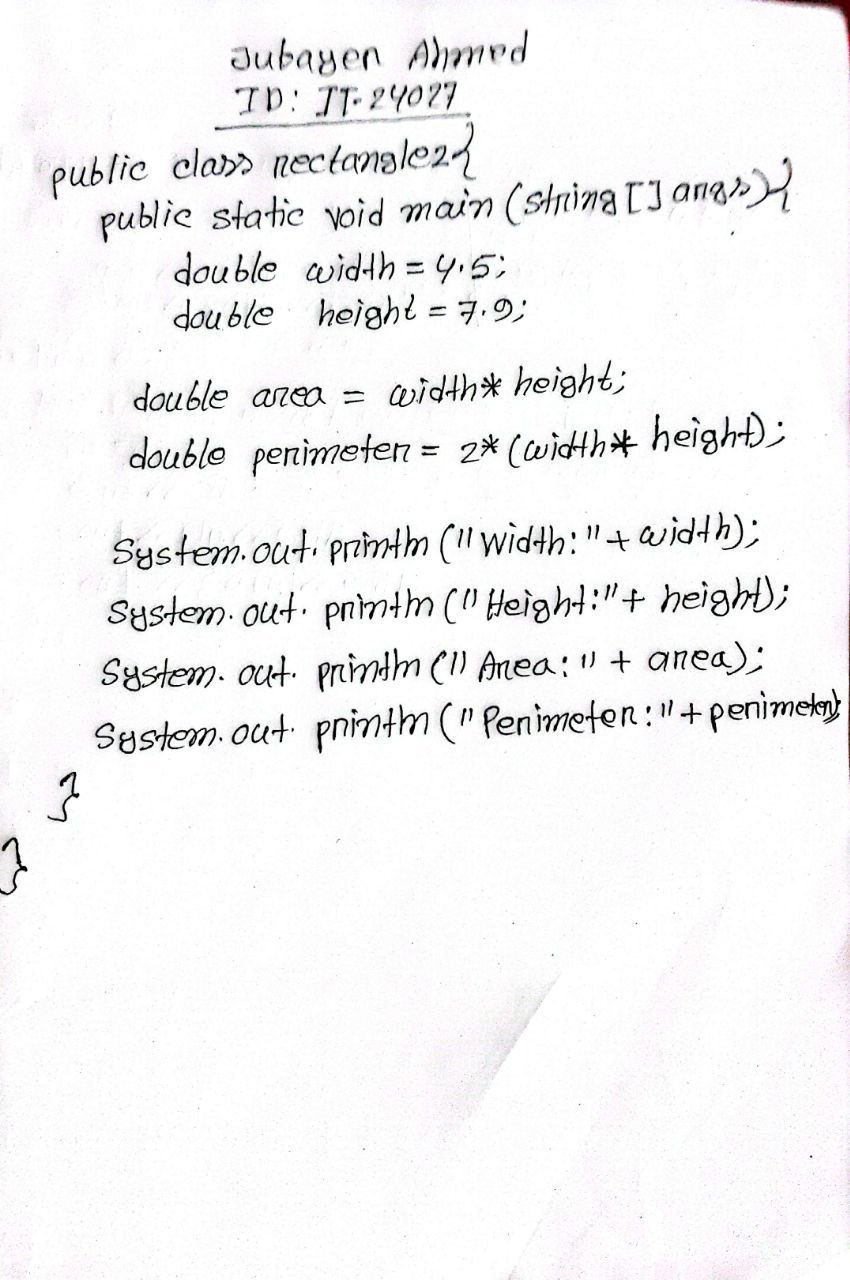 Jubayer Ahmed
ID: IT-24027
public class rectangle2{
public static void main (string [] args){
double width = 4.5;
double height = 7.9;
double area = width* height;
double perimeter = 2* (width* height);
System.out.println ("Width:"+ width);
System.out.println ("Height:"+ height);
System.out.println ("Area:" + area);
System.out.println ("Perimeter:"+perimeter);
}
}